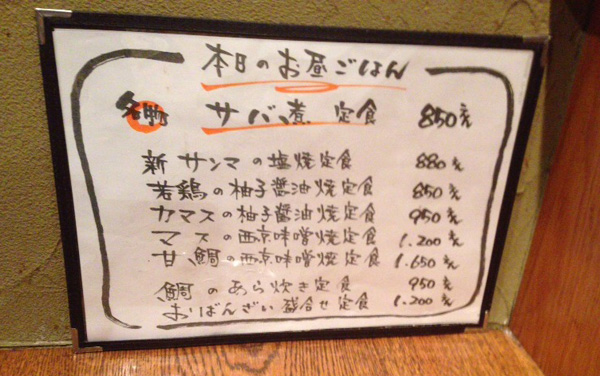 本日のお昼ごはん
名物 サバ煮定食 850円
新サンマの塩焼定食 880円
若鶏の柚子醤油焼定食 850円
カマスの柚子醤油焼定食 950円
マスの西京味噌焼定食 1.200円
甘鯛の西京味噌焼定食 1.650円
鯛のあら炊き定食 950円
おばんざい盛合せ定食 1.200円